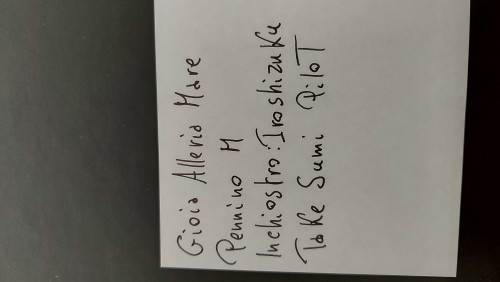 Gioia Alleria Mare
Pennino M
Inchiostro: Iroshizuku
Take Sumi Pilot